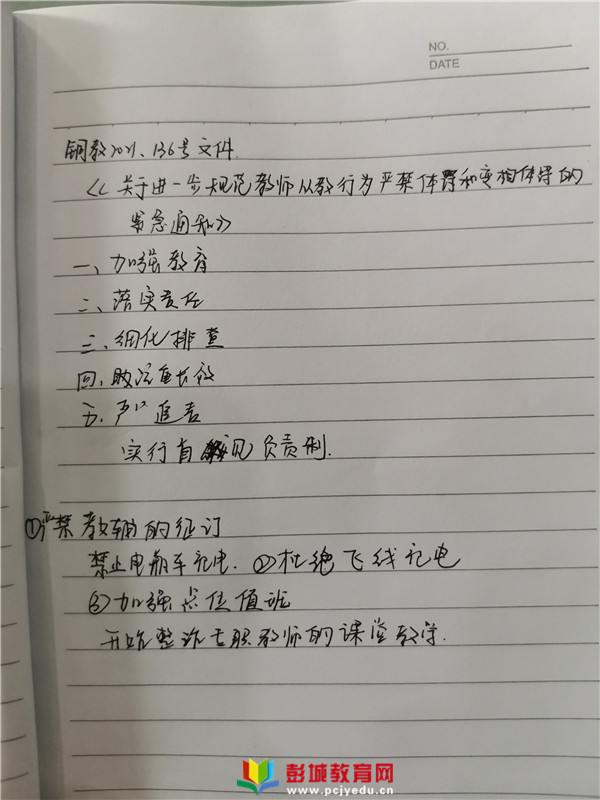 NO.
DATE
铜教2021、136号文件.
《关于进一步规范教师从教行为严禁体罚和变相体罚的
紧急通知》
一、加强教育
二、落实责任
三、细化排查
四、
五、严以追责
实行首负责制.
①严禁教辅的征订
禁止电瓶车充电. ②杜绝飞线充电
③加强点位值班
开始整治专职教师的课堂教学.
彭城教育网
www.pcjyedu.cn